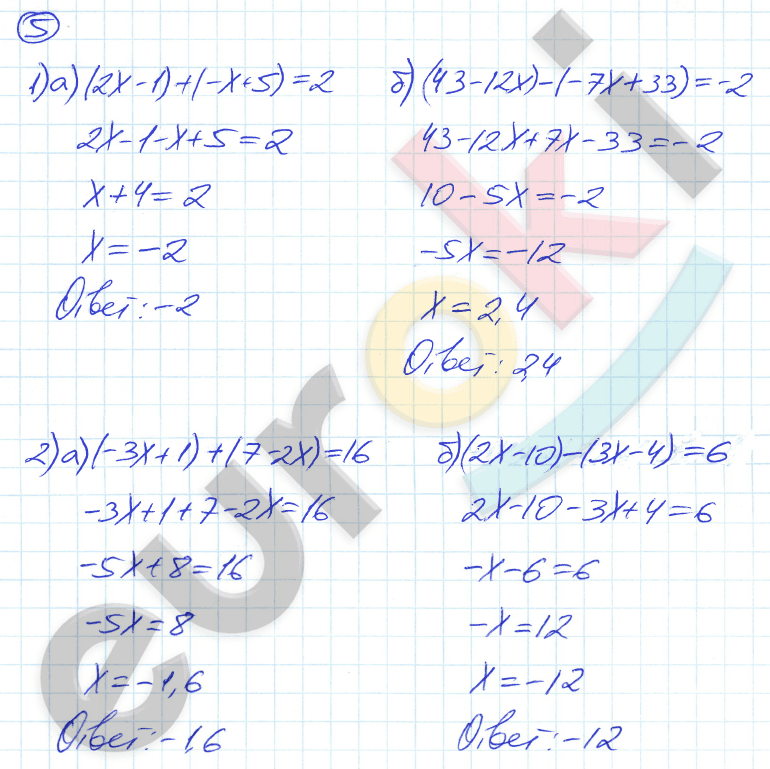 5
1) а) (2x-1)+(-x+5)=2
2x-1-x+5=2
x+4=2
x=-2
Ответ: -2
б) (43-12x)-(-7x+33)=-2
43-12x+7x-33=-2
10-5x=-2
-5x=-12
x=2,4
Ответ: 2,4
2) а) (-3x+1)+(7-2x)=16
-3x+1+7-2x=16
-5x+8=16
-5x=8
x=-1,6
Ответ: -1,6
б) (2x-10)-(3x-4)=6
2x-10-3x+4=6
-x-6=6
-x=12
x=-12
Ответ: -12
euroki